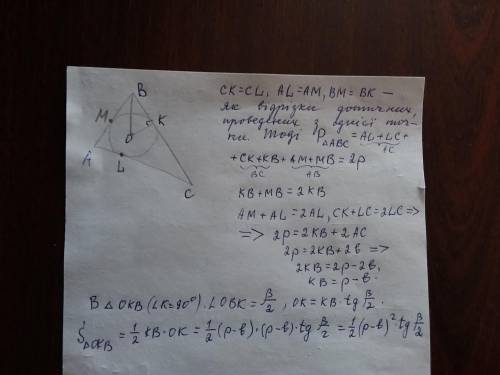 B
M
K
O
A
L
C
CK=CL, AL=AM, BM=BK —
як відрізки дотичних,
проведених з однієї точ-
ки. Тоді P△ABC = AL+LC+
AC
+CK+KB+AM+MB=2p
BC AB
KB+MB=2KB
AM+AL=2AL, CK+LC=2LC =>
=> 2p=2KB+2AC
2p=2KB+2b =>
2KB=2p-2b,
KB=p-b.
В △OKB (∠K=90°). ∠OBK=β/2, OK=KB·tg β/2.
S△OKB = 1/2 KB·OK = 1/2 (p-b)·(p-b)·tg β/2 = 1/2 (p-b)² tg β/2